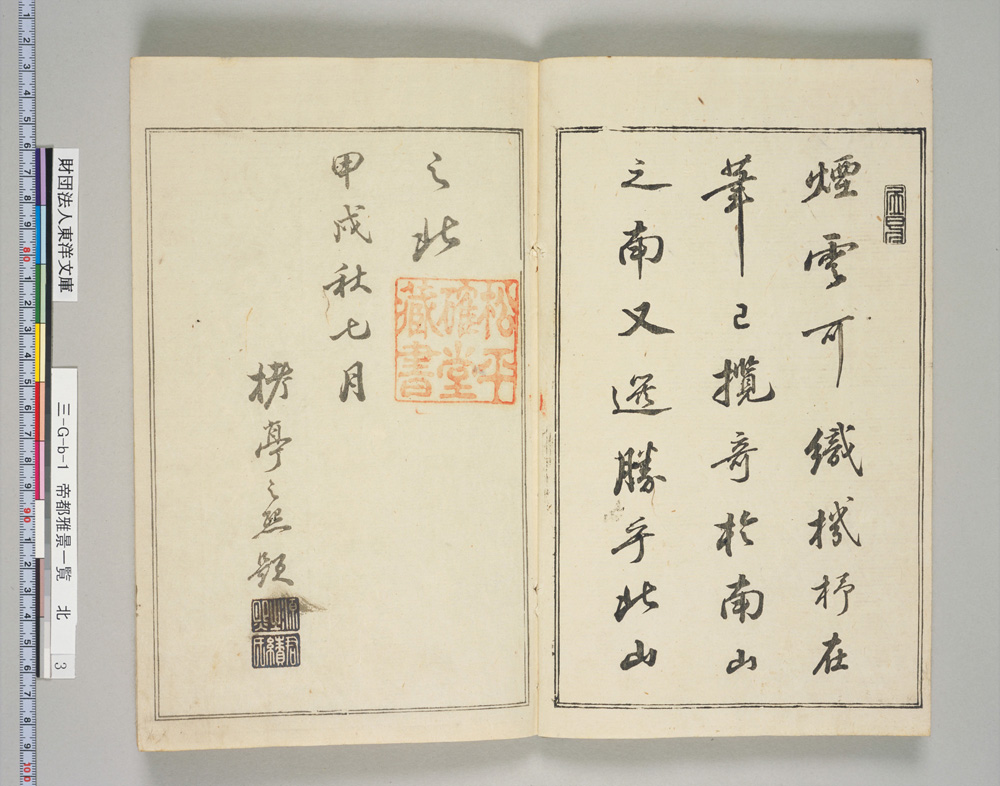 煙雲可織機杼在
筆已攬奇於南山
之南又選勝乎北山
之北
甲戌秋七月
栲亭之熙題
松平
確堂
藏書
財団法人東洋文庫
三-G-b-1 帝都雅景一覧 北 3